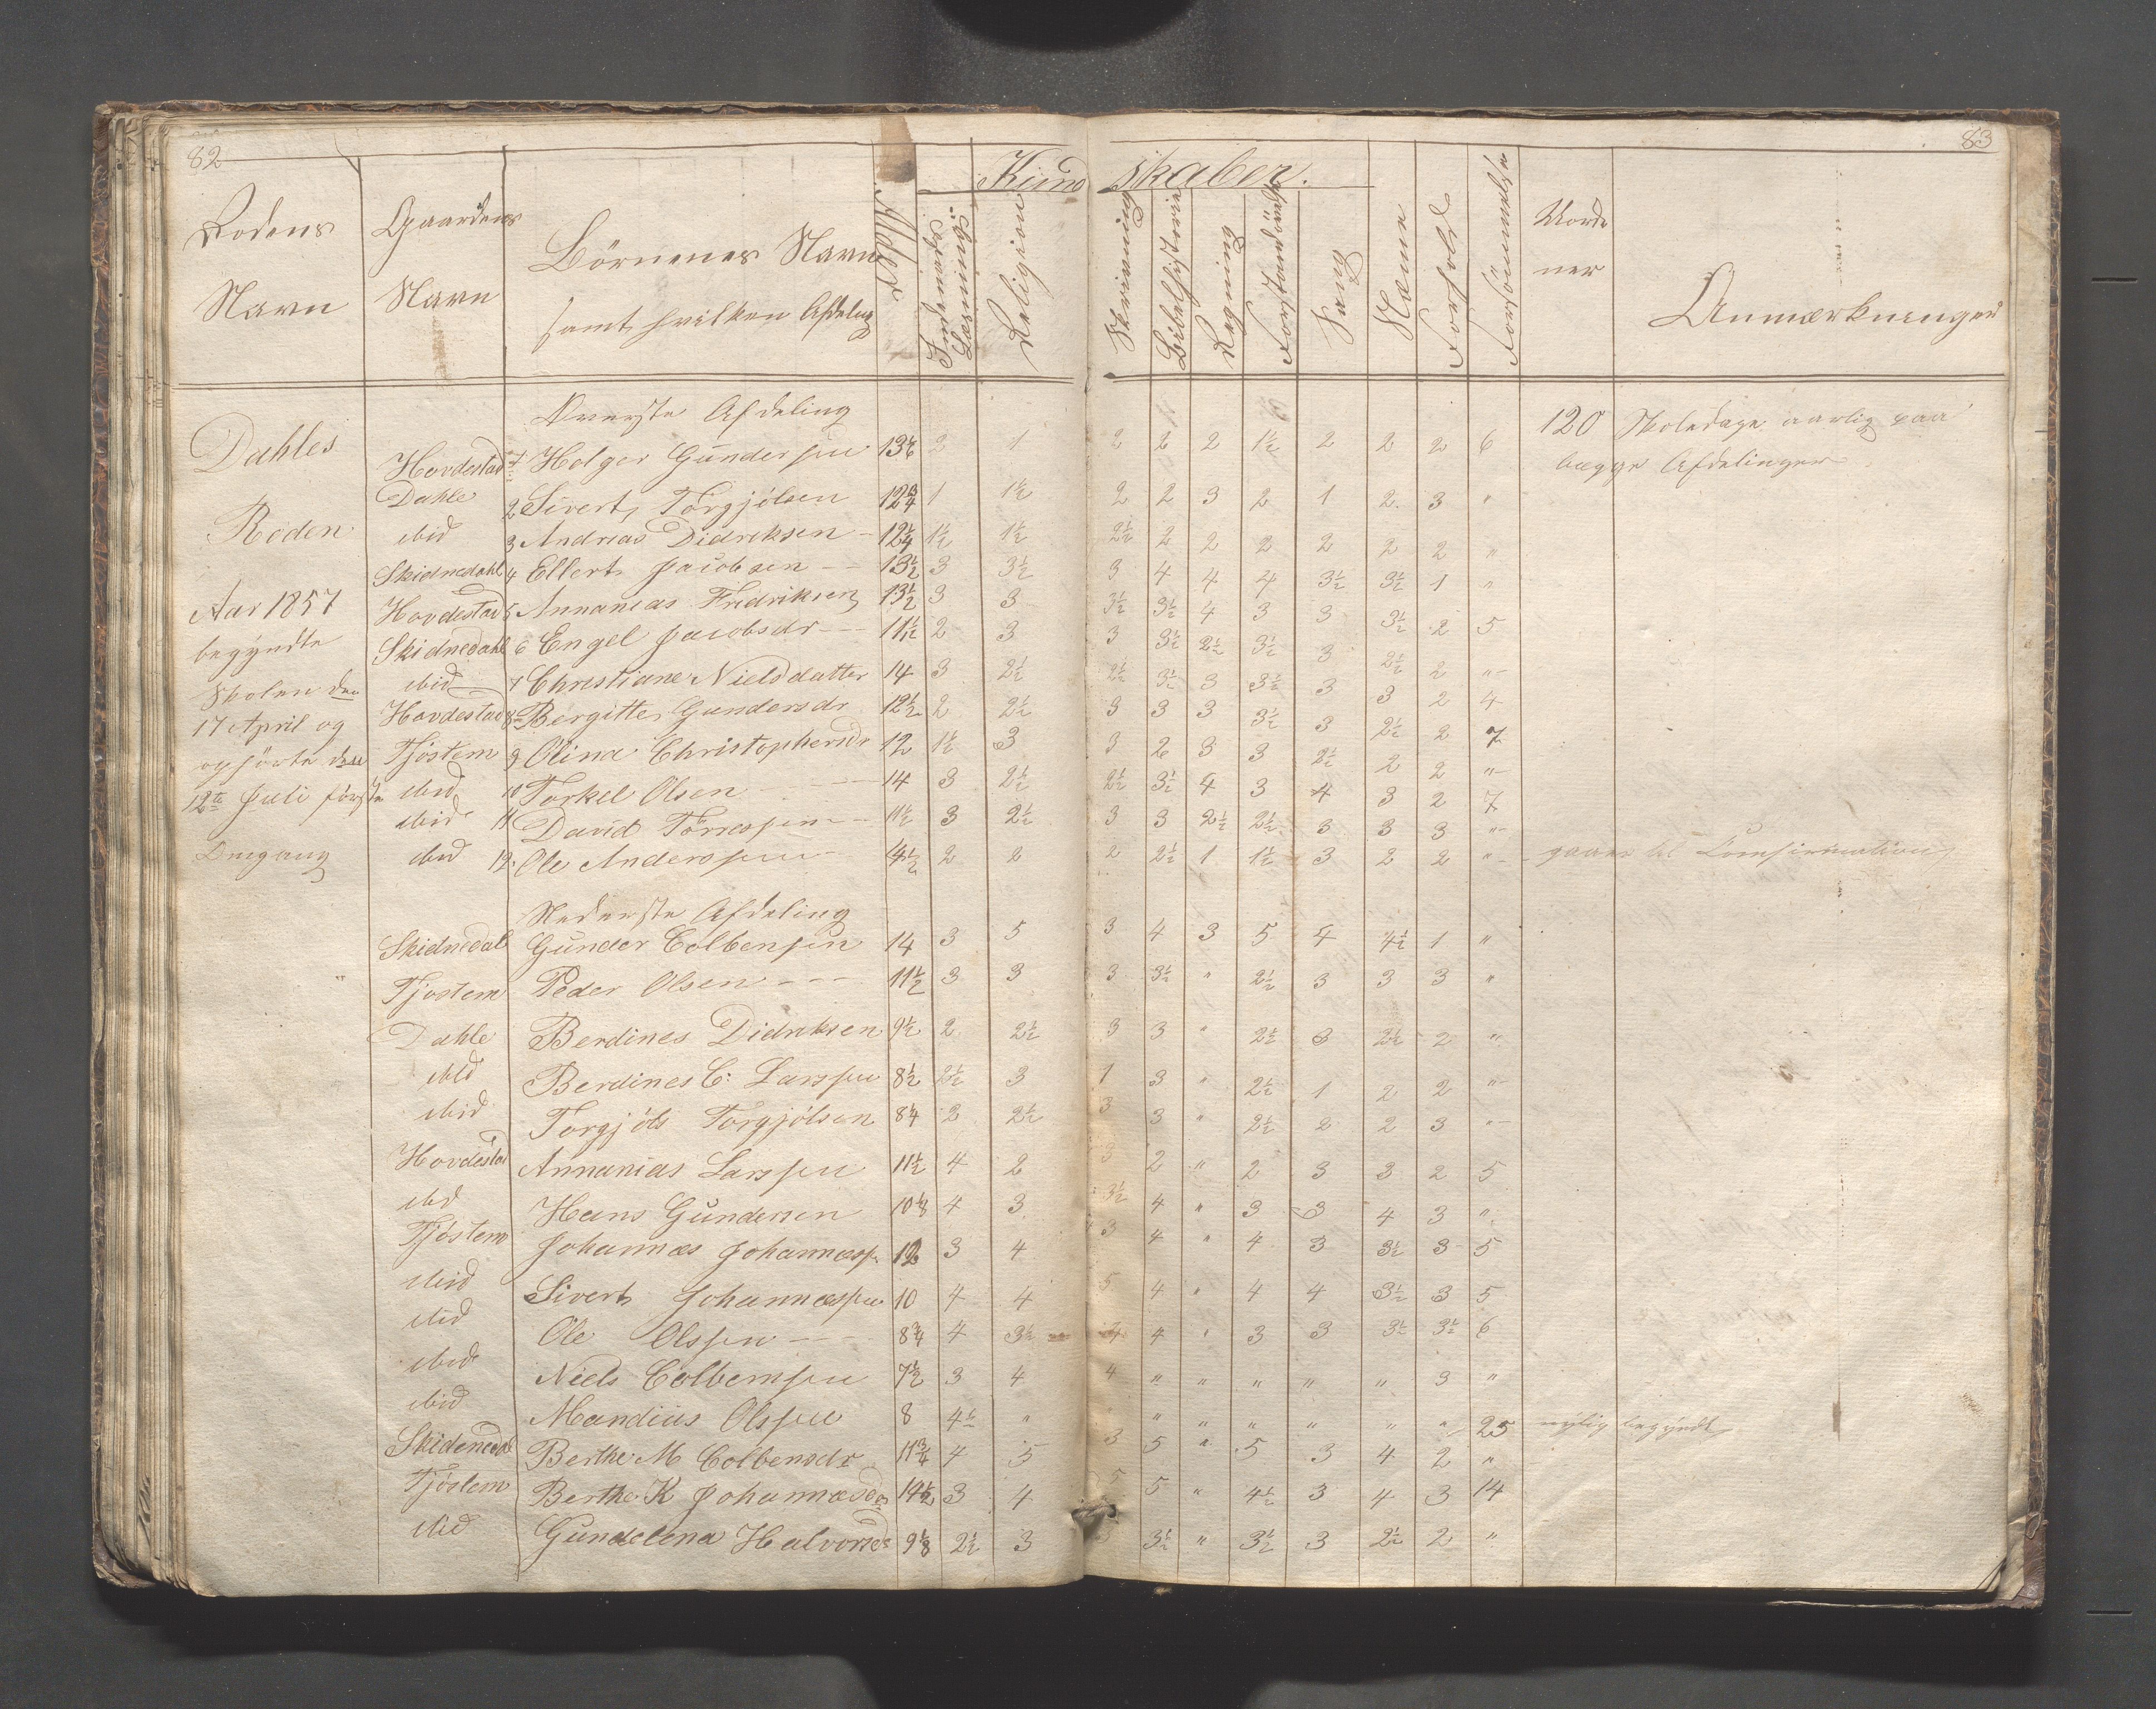 82
83
Rodens Navn
Gaardens Navn
Börnenes Navn samt hvilken Afdeling
Alder
Kund skaber.
Indenads Læsning
Religion
Skrivning
Bibelhistorie
Regning
Forstandöv
Sang
Næme
Forhold
Forsömmelse
Anmærkninger
Dahles Roden
Aar 1857
begyndte
Skolen den
17 April og
ophörte den
12te Juli första
Omgang
Överste Afdeling
120 Skoledage aarlig paa
begge Afdelinger
Hovdestad 1 Holger Gundersen 2 1 2 2 2 1½ 2 2 2 6
Dahle 2 Sivert Torgjölsen 12¾ 1 1½ 2 2 3 2 1 2 3 "
ibid 3 Andreas Didriksen 12¼ 1½ 1½ 2½ 2 2 2 2 2 2 "
Skidnedahl 4 Ellert Jacobsen 13½ 3 3½ 3 4 4 4 3½ 3½ 1 "
Hovdestad 5 Annanias Fredriksen 13½ 3 3 3½ 3½ 4 3 3 3½ 2 5
Skidnedahl 6 Engel Jacobsdr 11½ 2 3 3 3½ 2½ 3½ 3 2½ 2 "
ibid 7 Christiane Nielsdatter 14 3 2½ 2½ 3½ 3 3½ 3 3 2 4
Hovdestad 8 Bergitte Gundersdr 12½ 2 2½ 3 3 3 3½ 3 2½ 2 7
Tjöstem 9 Olina Christophersdr 12 1½ 3 3 2 3 3 2½ 2 2 "
ibid 10 Torkel Olsen 14 3 2½ 2½ 3½ 4 3 4 3 2 7
ibid 11 David Törrespen 11½ 3 2½ 3 3 2½ 2½ 3 3 3 "
ibid 12 Ole Anderssen 14½ 2 2 2 2½ 1 1½ 3 2 2 " gaaer til Confirmation
Nederste Afdeling
Skidnedal Gunder Colbensen 14 3 5 3 4 3 5 4 4½ 1 "
Tjostem Peder Olsen 11½ 3 3 3 3½ " 2½ 3 3 3 "
Dahle Berdines Didriksen 9½ 2 2½ 3 3 " 2½ 3 2½ 2 "
ibid Berdines C: Larssen 8½ 2½ 3 1 3 " 2½ 1 2 2 "
ibid Torgjöls Torgjölsen 8¼ 2 2½ 3 3 " 2½ 2 2 3 "
Hovdestad Annanias Larssen 11½ 4 2 3 2 " 2 3 3 2 5
ibid Hans Gundersen 10⅛ 4 3 3½ 4 " 3 3 4 3 "
Tjöstem Johannes Johannessen 12 3 4 3 4 " 4 3 3½ 3 5
ibid Sivert Johannessen 10 4 4 5 4 " 4 4 3½ 3 5
ibid Ole Olssen 8¾ 4 3½ 4 4 " 3 3 3½ 3½ 6
ibid Niels Colbensen 7½ 3 4 4 " " " " " 3 "
ibid Mandius Olssen 8 4½ " " " " " " " 25 nylig begyndt
Skidnedal Berthe M Colbensdr 11¾ 4 5 3 5 " 5 3 4 2 "
Tjöstem Berthe K Johannesdr 14½ 3 4 5 5 " 4½ 3 4 3 14
ibid Gundelena Halvorsdr 9⅛ 2½ 3 3 3½ " 3½ 3 2½ 2 "